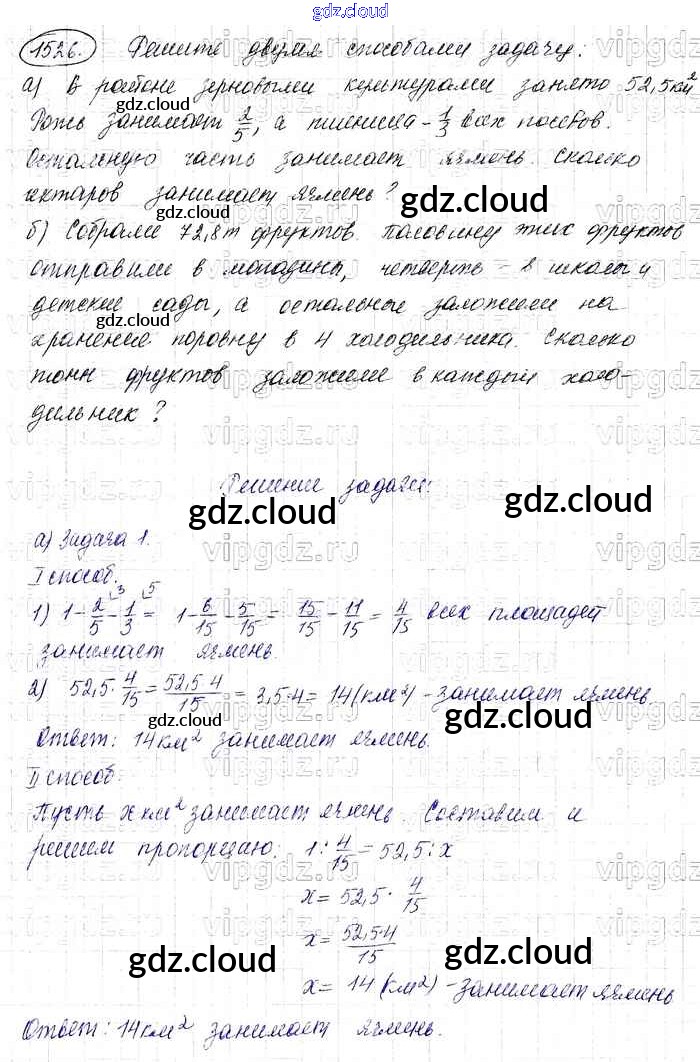 gdz.cloud
1526. Решите двумя способами задачу:
а) В районе зерновыми культурами занято 52,5 км²
Рожь занимает 2/5, а пшеница - 1/3 всех посевов.
Остальную часть занимает ячмень. Сколько
гектаров занимает ячмень?
б) Собрали 72,8 т фруктов. Половину этих фруктов
отправили в магазины, четверть - в школы и
детские сады, а остальные заложили на
хранение поровну в 4 холодильника. Сколько
тонн фруктов заложили в каждый холо-
дильник?
Решение задачи:
а) Задача 1.
I способ.
1) 1 - 2/5 - 1/3 = 1 - 6/15 - 5/15 = 15/15 - 11/15 = 4/15 всех площадей
занимает ячмень.
2) 52,5 · 4/15 = 52,5·4/15 = 3,5·4 = 14 (км²) - занимает ячмень.
Ответ: 14 км² занимает ячмень.
II способ.
Пусть x км² занимает ячмень. Составим и
решим пропорцию. 1 : 4/15 = 52,5 : x
x = 52,5 · 4/15
x = 52,5·4/15
x = 14 (км²) - занимает ячмень
Ответ: 14 км² занимает ячмень.